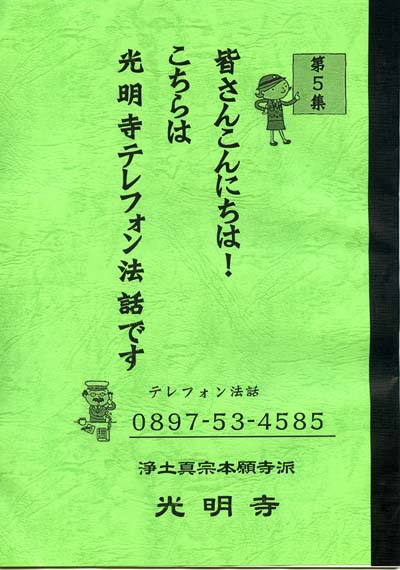 第5集
皆さんこんにちは！
こちらは
光明寺テレフォン法話です
テレフォン法話
0897-53-4585
浄土真宗本願寺派
光明寺